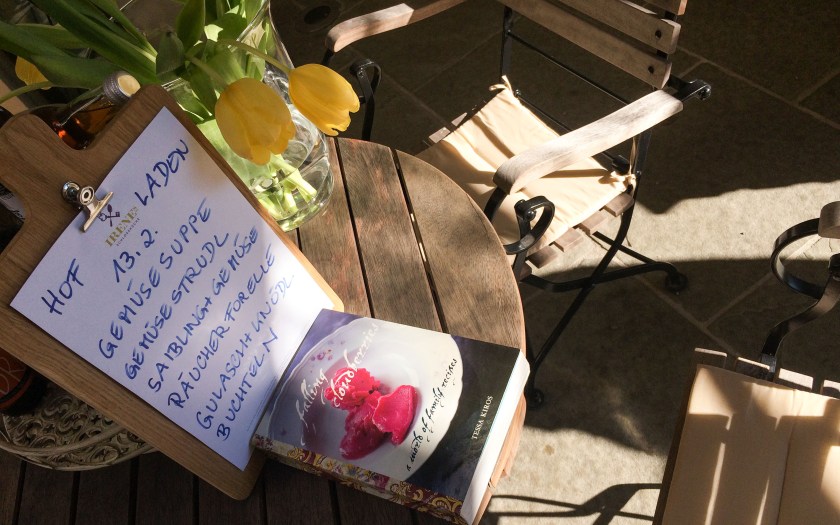 HOF LADEN
IRENE
13. 2.
GEMÜSE SUPPE
GEMÜSE STRUDL
SAIBLING + GEMÜSE
RÄUCHER FORELLE
GULASCH + KNÖDL.
BUCHTELN
falling
cloudberries
a world of family recipes
TESSA KIROS